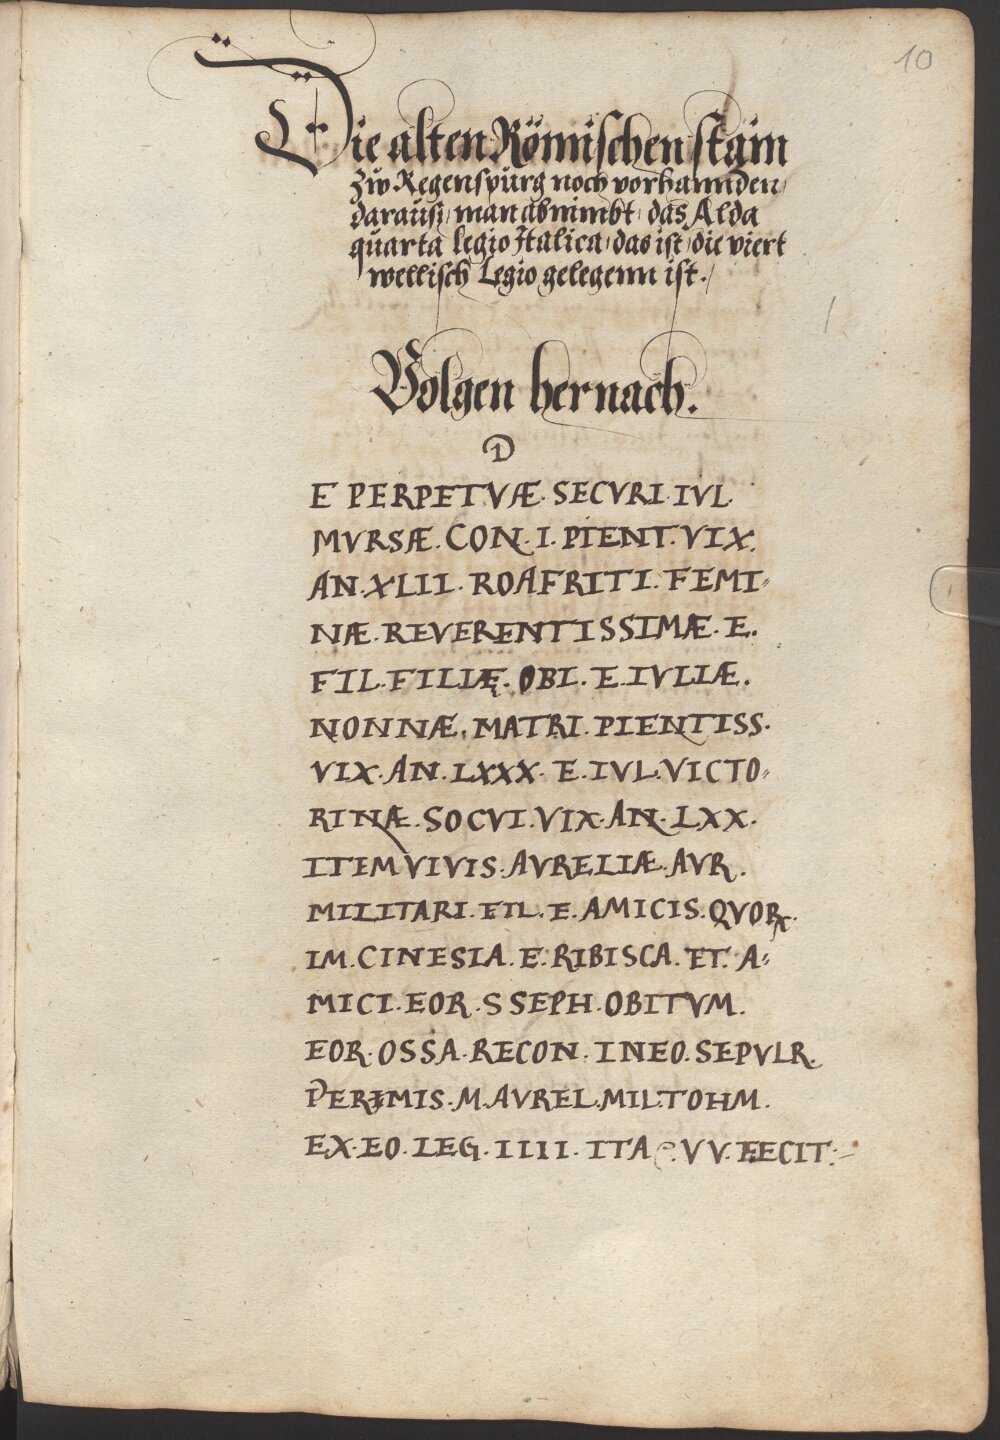 10
Die alten Römischen stäin
Zw Regenspurg noch vorhannden /
darauss / man abnimbt / das Alda
quarta legio Italica / das ist / die viert
wellisch Legio gelegenn ist. /
Volgen hernach.
D
E PERPETVÆ. SECVRI. IVL
MVRSÆ. CON. I. PIENT. VIX.
AN. XLII. ROAFRITI. FEMI⸗
NÆ. REVERENTISSIMÆ. E.
FIL. FILIĘ. OBI. E. IVLIÆ.
NONNÆ. MATRI. PIENTISS.
VIX. AN. LXXX. E. IVL. VICTO⸗
RINÆ. SOCVI. VIX. AN. LXX.
ITEM VIVIS. AVRELIÆ. AVR.
MILITARI. FIL. E. AMICIS. QVOꝶ.
IM. CINESIA. E. RIBISCA. ET. A⸗
MICI. EOR. S SEPH. OBITVM.
EOR. OSSA. RECON. INEO. SEPVLR.
PERIMIS. M. AVREL. MIL. TOHM.
EX. EO. LEG. IIII. ITA VV. FECIT: